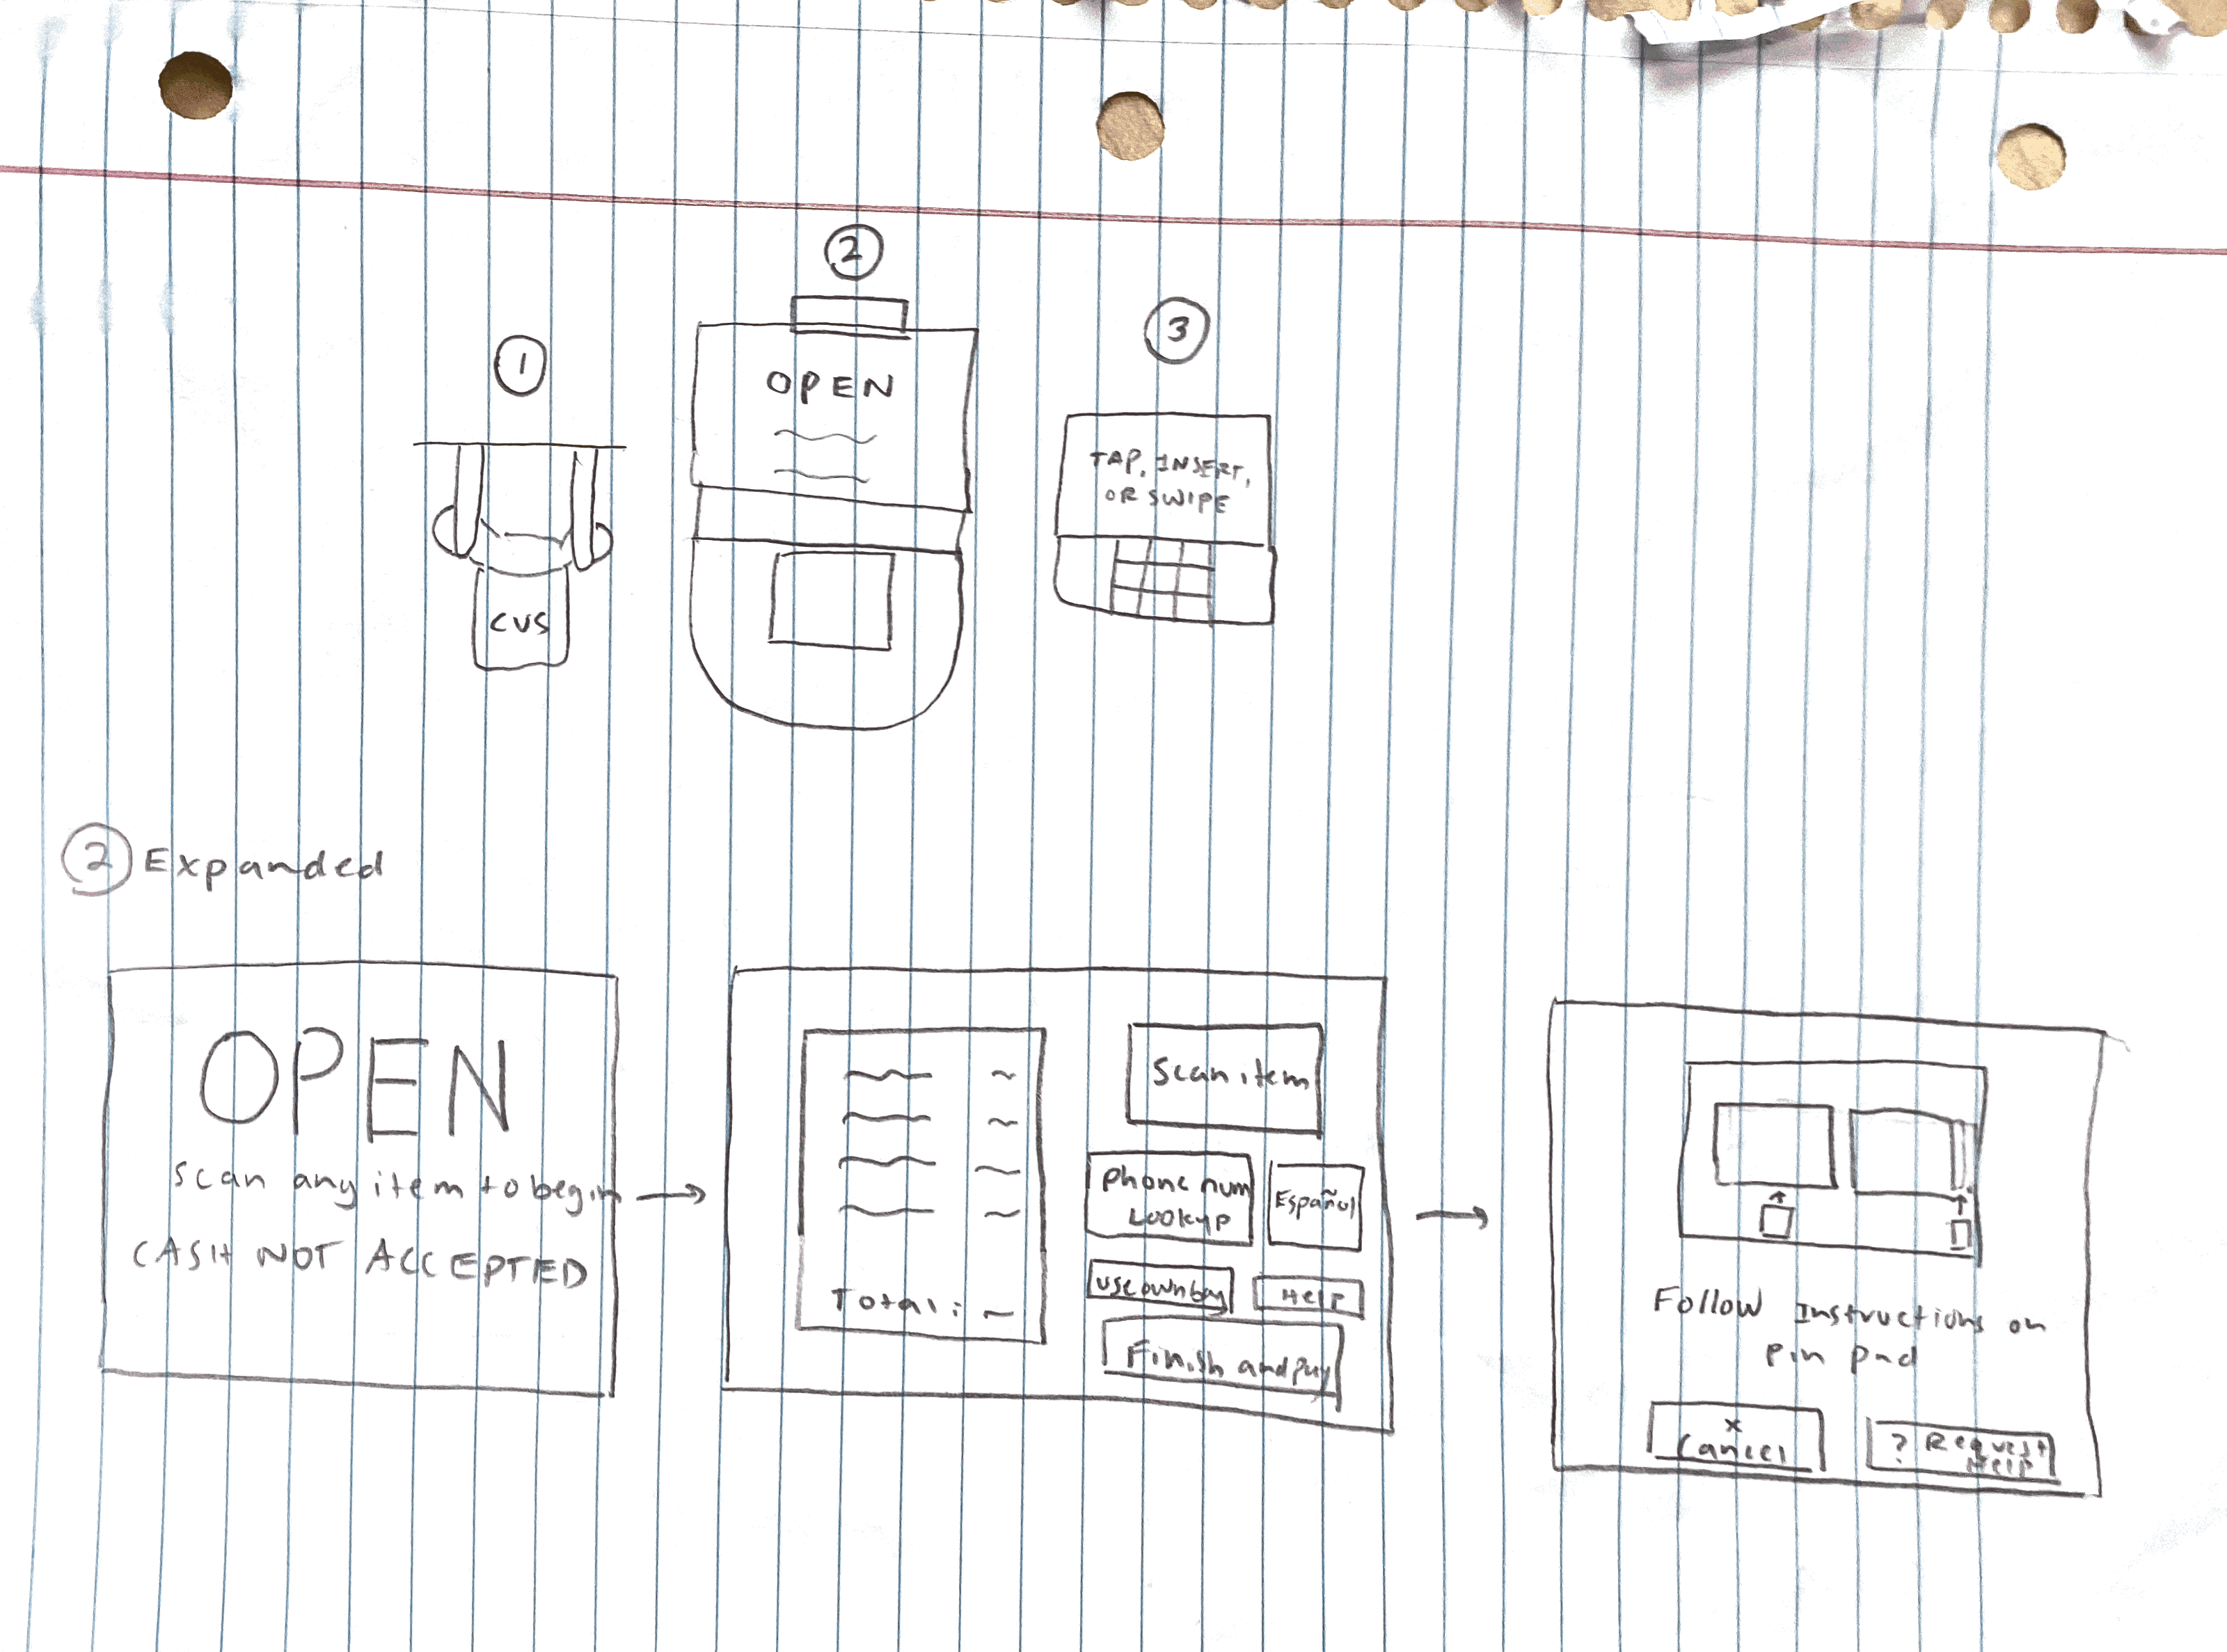 1
2
3
OPEN
TAP, INSERT,
OR SWIPE
CVS
2 Expanded
OPEN
scan any item to begin
CASH NOT ACCEPTED
Total: ~
Scan item
Phone num
Lookup
Español
use own bag
Help
Finish and pay
Follow Instructions on
pin pad
x
Cancel
? Request
Help